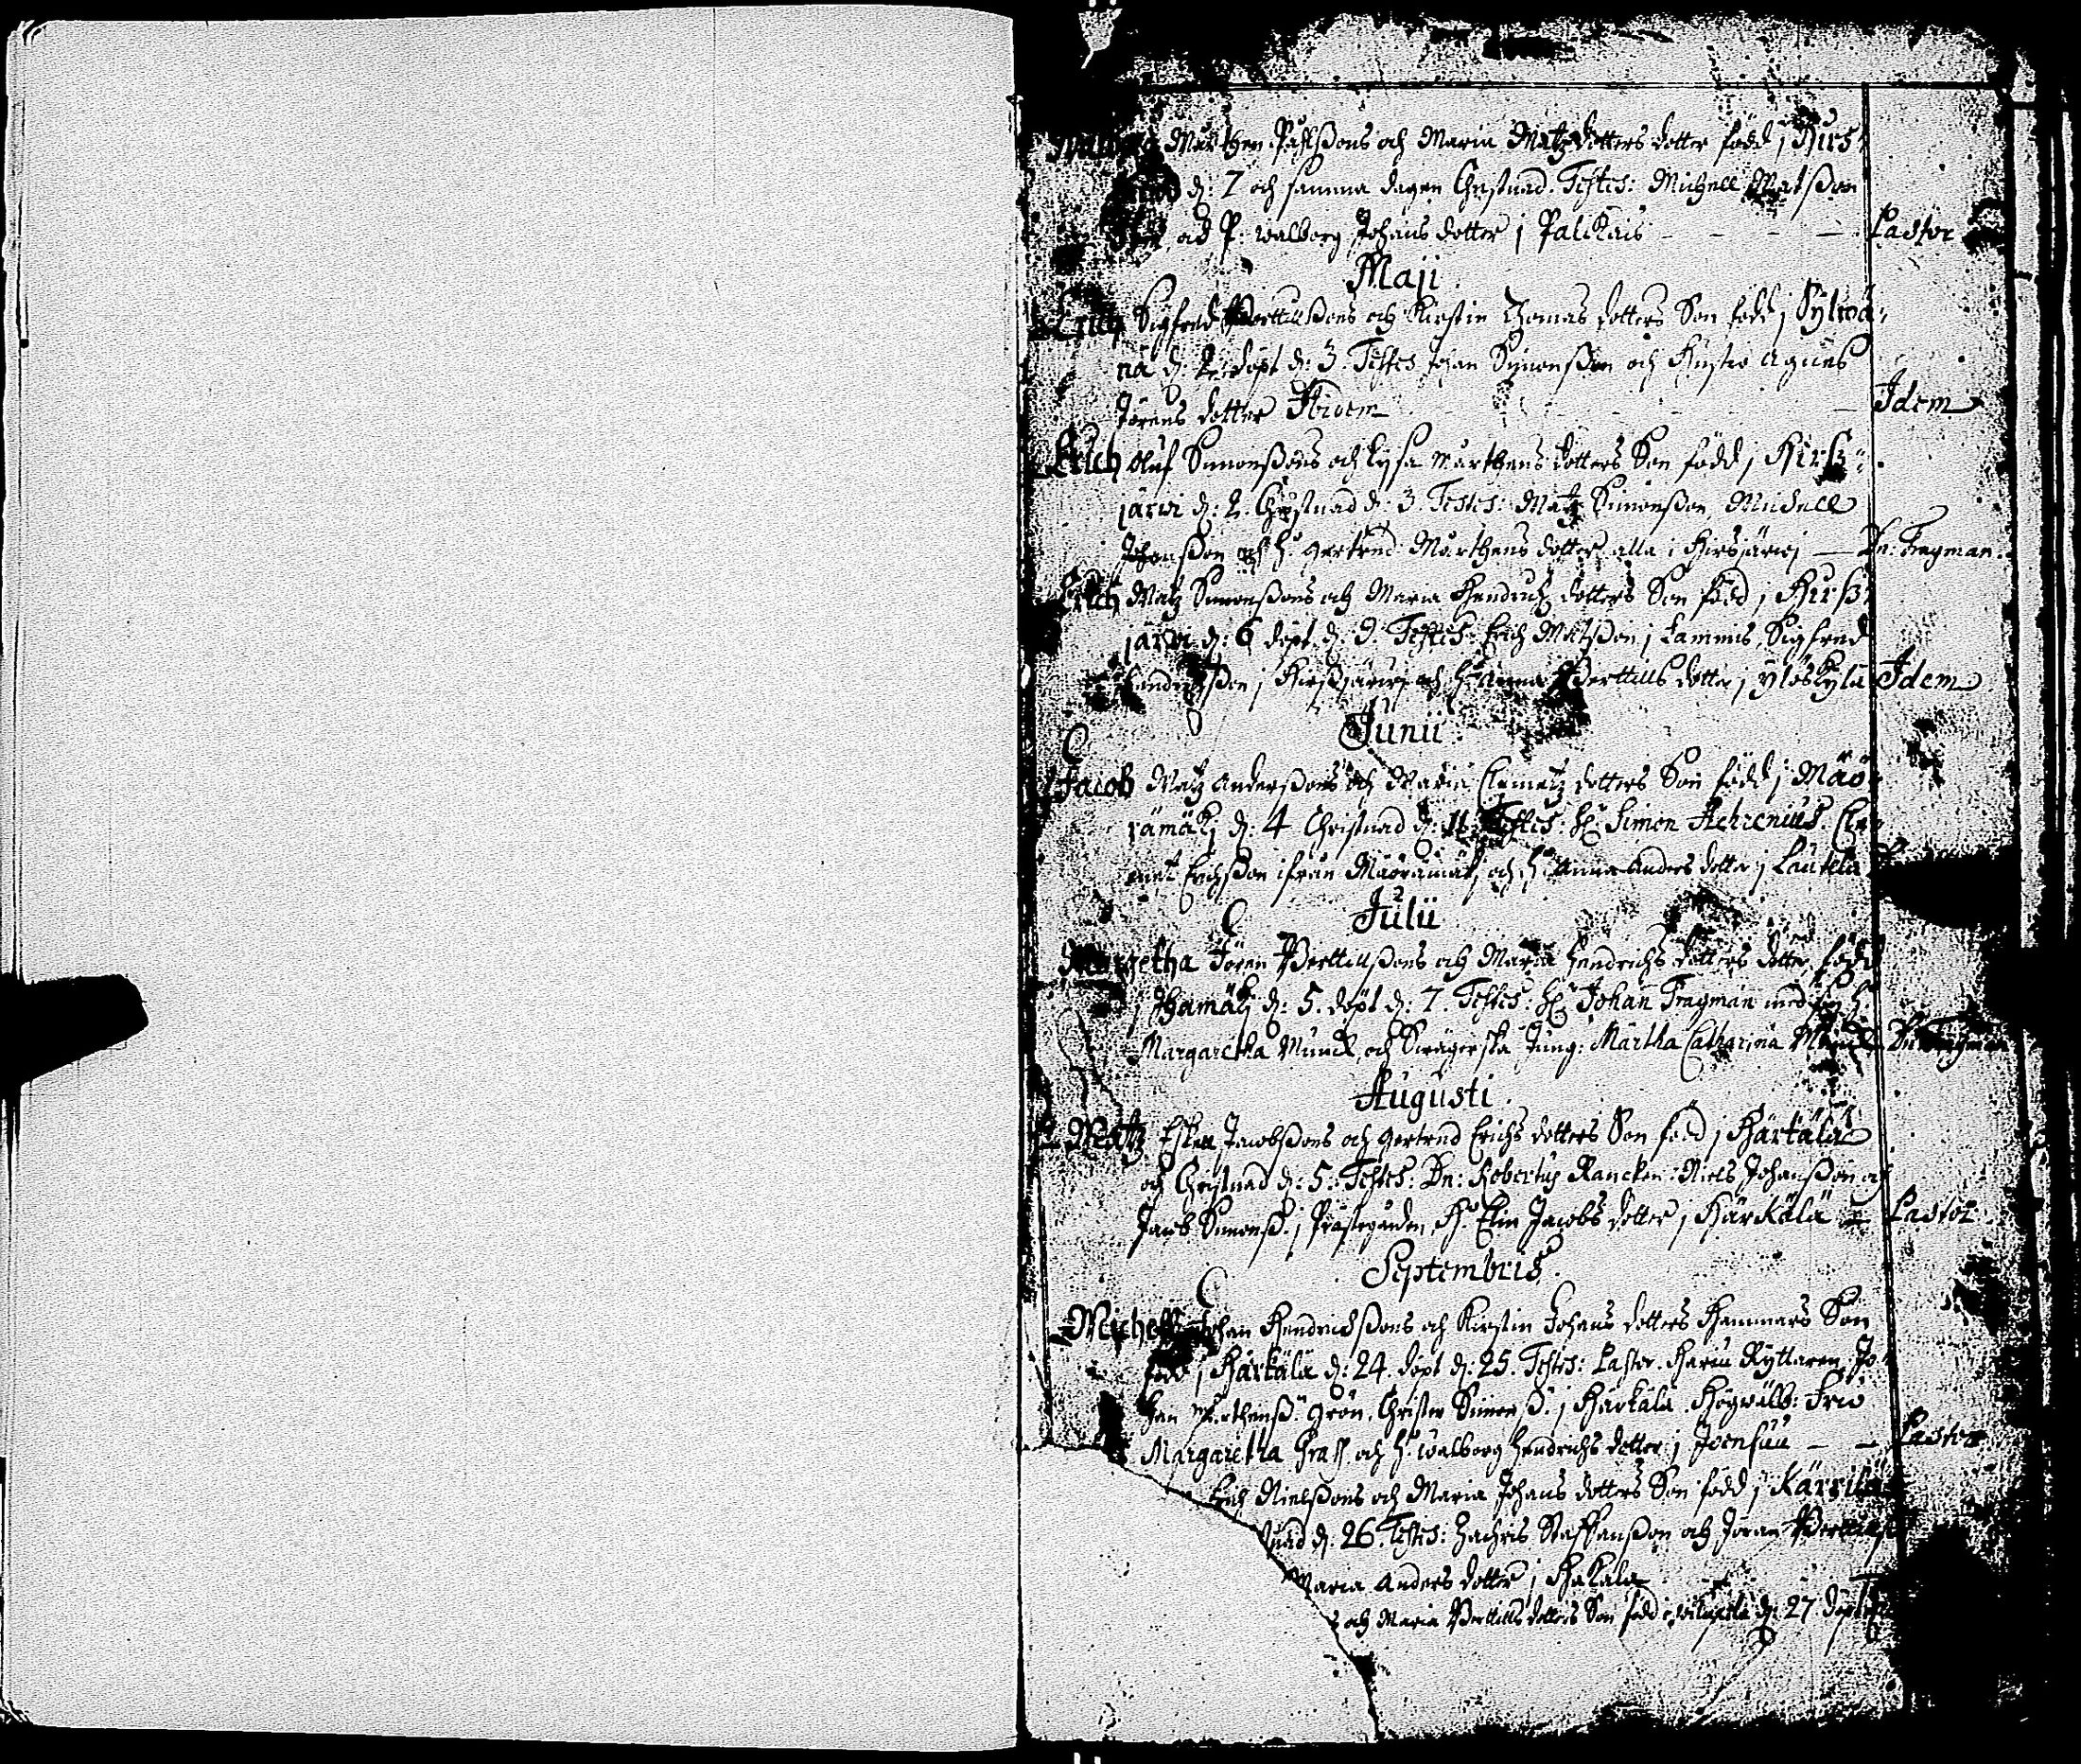 Mårthen Påhlßons och Maria Matz dotters dotter född j Hirs-
d: 7 och samma dagen Christnad. Testes: Michell Matsßon
ad P. walborg Johans dotter j Palikais — — — — Pastor
Maji.
Erich Sigfred Berttillßons och Kirstin Thomas dotters Son född j Sylwä-
nä d: 2. döpt d: 3. Testes Johan Simonßon och Hustro Agnes
Jörens dotter Ibidem — — — Idem
Erich Oluf Simonßons och Lysa Mårthens dotters Son född j Hirß-
järwi d: 2. Christnad d: 3. Testes: Matz Simonßon Michell
Johanßon och H: Gertrud Mårthens dotter alla i Hirsjärwj — Dn: Fragman.
Erich Matz Simonßons och Maria Hendrichz dotters Son född j Hirß-
järwi d: 6 döpt d: 9. Testes: Erich Matsßon j Lammis, Sigfred
Hendrichßon j Hirßjärwj och H: Anna Berttills dotter j Ylöskylä Idem
Junii.
Jacob Matz Anderßons och Maria Clemetz dotters Son född j Mäo-
rämäkj d: 4 Christnad d: 11. Testes: H: Simon Aehrenius. Cle-
met Erichßon ifrån Mäorämäkj och H: Anna Anders dotter j Lautela
Julii
Margretha Jören Berttillßons och Maria Hendrichs dotters dotter född
j Hamäkj d: 5. döpt d: 7. Testes: H: Johan Fragman med sin H:
Margaretha Munck, och Swägerska Jung: Märtha Catharina Munck Dn: Fragman
Augusti.
Matz Eskell Jacobßons och Gertrud Erichs dotters Son född j Härkälä
och Christnad d: 5. Testes: Dn: Robertus Rancken. Niels Johanßon och
Jacob Simonß. j Prästegården H: Elin Jacobs dotter j Härkälä — Pastor
Septembris.
Michell Johan Hendrichßons och Kirstin Johans dotters Hammars Son
född j Härkälä d: 24. döpt d: 25 Testes: Pastor. Ryttaren Jo-
han Mårthenß. Grön, Christer Simonß. j Härkälä. Högwälb: Fru
Margaretha och H: Walborg Hendrichs dotter j Joensuu — — Pastor
Erich Nielßons och Maria Johans dotters Son född j Kärrilä
nad d: 26. Testes: Zachris Staffanßon och Jöran Berttillß
Maria Anders dotter j Hakala
s och Maria Berttills dotters Son född d: 27 döpt